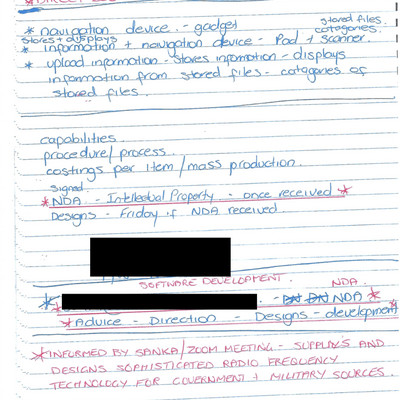 * navigation device. - gadget stored files. catagories.
stores + displays
* information + navigation device - Pod + scanner.
* upload information - stores information - displays
information from stored files - catagories of
stored files.
capabilities.
procedure / process.
costings per item / mass production.
signed
* NDA. - Intellectual Property - once received *
Designs - Friday if NDA received.
SOFTWARE DEVELOPMENT. NDA.
* - NDA *
* Advice - Direction - Designs - development
* INFORMED BY SANKA / ZOOM MEETING - SUPPLYS AND
DESIGNS SOPHISTICATED RADIO FREQUENCY
TECHNOLOGY FOR GOVERNMENT + MILITARY SOURCES.